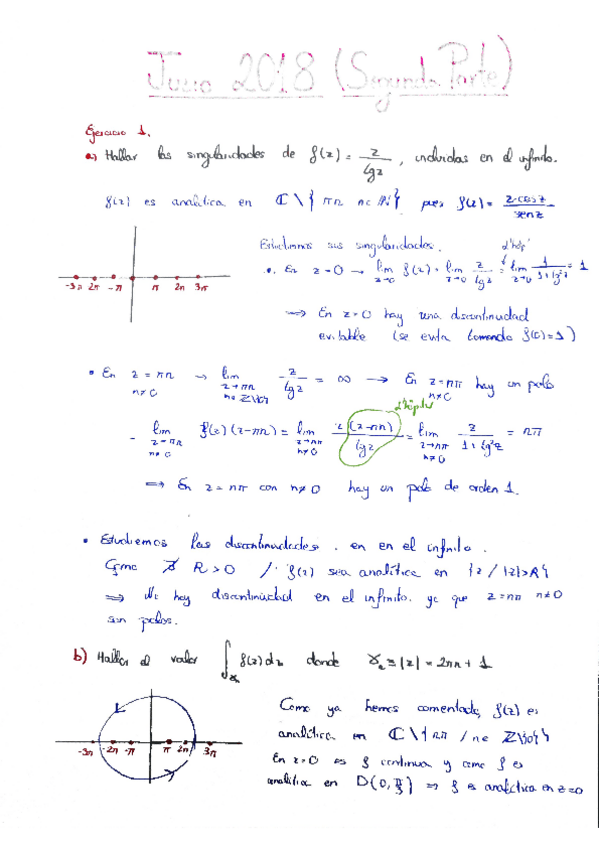 Junio 2018 (Segunda Parte)
Ejercicio 1.
a) Hallar las singularidades de f(z) = z / tg z , incluidas en el infinito.
f(z) es analítica en ℂ \ { πn n∈ℤ } pues f(z) = z·cos z / sen z
Estudiamos sus singularidades.
• En z=0 → lim z→0 f(z) = lim z→0 z / tg z = L'hôp lim z→0 1 / 1+tg²z = 1
-3π -2π -π π 2π 3π
⟹ En z=0 hay una discontinuidad
evitable (se evita tomando f(0)=1)
• En z = πn n≠0 → lim z→πn n∈ℤ\{0} z / tg z = ∞ → En z=nπ n≠0 hay un polo
L'hôpital
- lim z→πn n≠0 f(z)(z-πn) = lim z→nπ n≠0 z(z-πn) / tg z = lim z→nπ n≠0 z / 1+tg²z = nπ
⟹ En z=nπ con n≠0 hay un polo de orden 1.
• Estudiemos las discontinuidades en en el infinito.
Como ∄ R>0 / f(z) sea analítica en {z / |z|>R}
⟹ hay discontinuidad en el infinito. ya que z=nπ n≠0
son polos.
b) Hallar el valor ∫ f(z)dz donde γₙ ≡ |z| = 2πn + 1
Como ya hemos comentado, f(z) es
analítica en ℂ \ { πn / n∈ ℤ\{0} }
En z=0 es f continua y como f es
-3π -2π -π π 2π 3π
analítica en ⟹ f es analítica en z=0